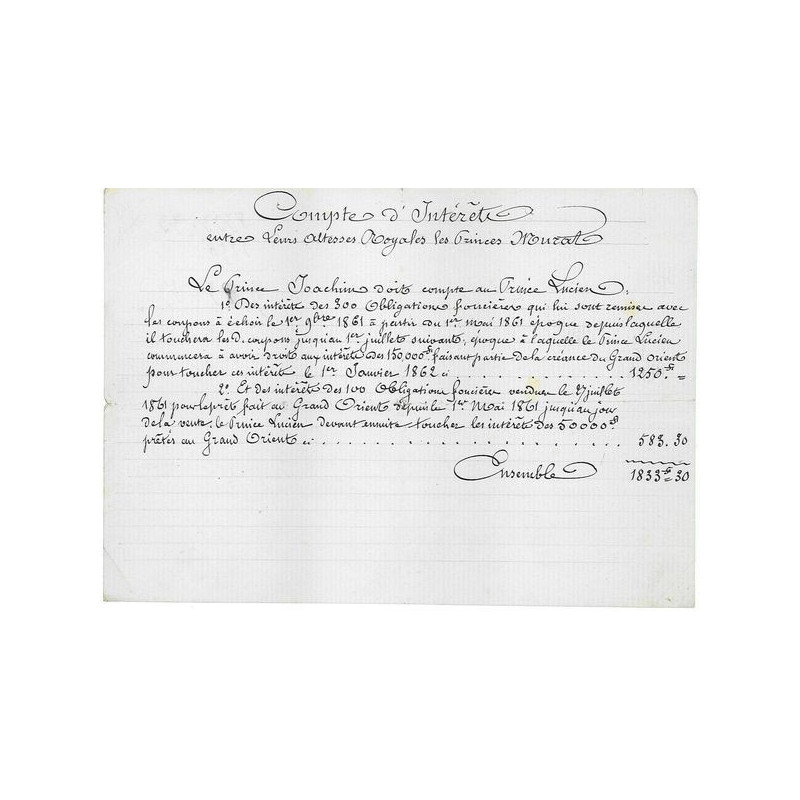 Compte d'Intérêts
entre Leurs Altesses Royales les Princes Murat
Le Prince Joachim doit compte au Prince Lucien,
1o. Des intérêts des 300 Obligations foncières qui lui sont remises avec
les coupons à échoir le 1er 9bre 1861 à partir du 1er mai 1861 époque depuis laquelle
il touchera les D. coupons jusqu'au 1er juillets suivants, époque à laquelle le Prince Lucien
commencera à avoir droits aux intérêts des 150,000 fs faisant partie de la créance du Grand Orient
pour toucher ces intérêts le 1er Janvier 1862 ci . . . . . . . . . . . . . . . 1250 fs =
2o. Et des intérêts des 100 Obligations foncières vendues le 27 juillets
1861 pour le prêt fait au Grand Orient depuis le 1er Mai 1861 jusqu'au jour
de la vente, le Prince Lucien devant ensuite toucher les intérêts des 50000 fs
prêtés au Grand Orient ci . . . . . . . . . . . . . . . . . . . . . . 583.30
Ensemble 1833 fs 30